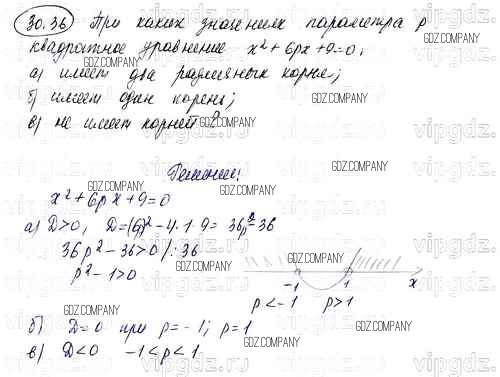 30.36 При каких значениях параметра p
квадратное уравнение x²+6px+9=0;
а) имеет два различных корня;
б) имеет один корень;
в) не имеет корней?
Решение:
x²+6px+9=0
а) D>0, D=(6p)²-4·1·9=36p²-36
36p²-36>0 /:36
p²-1>0
-1 1 x
p<-1 p>1
б) D=0 при p=-1; p=1
в) D<0 -1<p<1
GDZ.COMPANY
vipgdz.ru